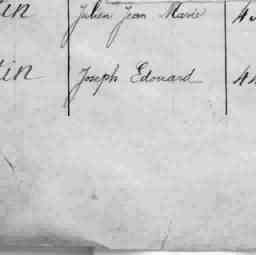 in Julien Jean Marie 4
in Joseph Edouard 4